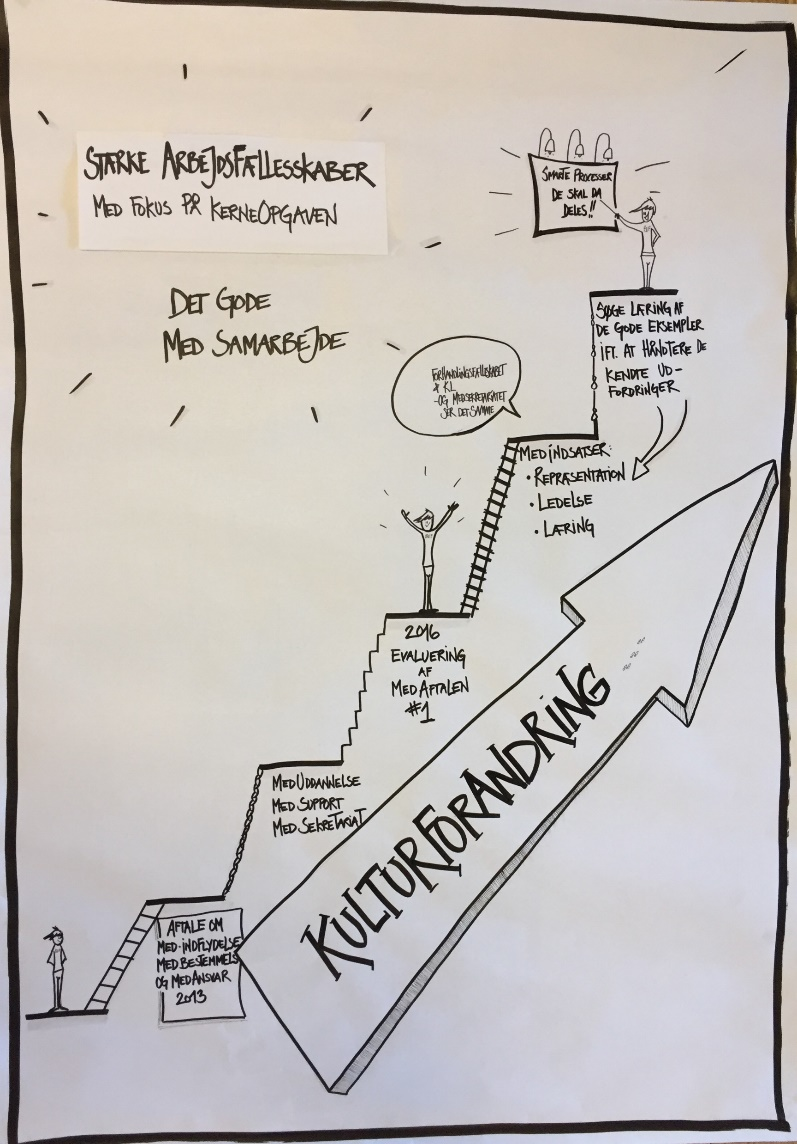 STÆRKE ARBEJDSFÆLLESSKABER
MED FOKUS PÅ KERNEOPGAVEN
DET GODE
MED SAMARBEJDE
SMARTE PROCESSER
DE SKAL DA
DELES!!
SØGE LÆRING AF
DE GODE EKSEMPLER
IFT. AT HÅNDTERE DE
KENDTE UD-
FORDRINGER
FORHANDLINGSFÆLLESKABET
& KL
- OG MEDSEKRETARIATET
SER DET SAMME
MEDINDSATSER:
• REPRÆSENTATION
• LEDELSE
• LÆRING
2016
EVALUERING
AF
MEDAFTALEN
#1
MEDUDDANNELSE
MEDSUPPORT
MEDSEKRETARIAT
AFTALE OM
MED-INDFLYDELSE
MEDBESTEMMELS
OG MEDANSVAR
2013
KULTURFORANDRING